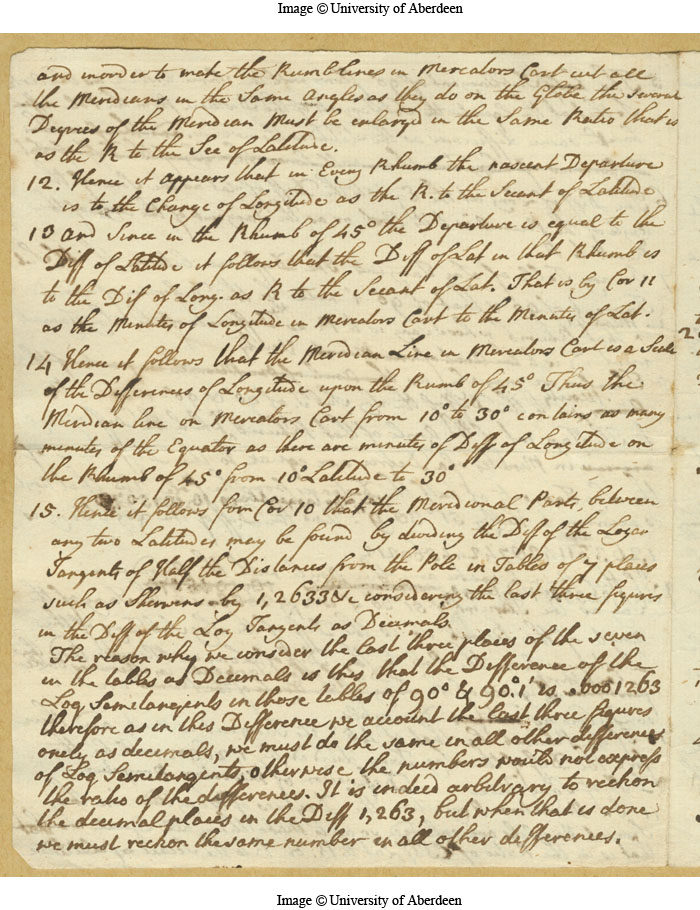 Image © University of Aberdeen
and inorder to make the Rumblines in Mercators Cart cut all
the Meridians in the Same Angles as they do on the Globe the several
Degrees of the Meridian Must be enlargd in the Same Ratio that is
as the R to the Sec of Latitude.
12. Hence it appears that in Every Rhumb the nascent Departure
is to the Change of Longitude as the R. to the Secant of Latitude
13 and Since in the Rhumb of 45° the Departure is equal to the
Diff of Latitude it follows that the Diff of Lat in that Rhumb is
to the Dif of Long. as R to the Secant of Lat. That is by Cor 11
as the Minutes of Longitude in Mercators Cart to the Minutes of Lat.
14 Hence it follows that the Meridian Line in Mercators Cart is a Scale
of the Differences of Longitude upon the Rumb of 45° Thus the
Meridian line on Mercators Cart from 10° to 30° contains as many
minutes of the Equator as there are minutes of Diff of Longitude on
the Rhumb of 45° from 10° Latitude to 30°
15. Hence it follows from Cor 10 that the Meridional Parts, between
any two Latitudes may be found by dividing the Diff of the Logar
Tangents of Half the Distances from the Pole in Tables of 7 places
such as Sherwins by 1,2633&c considering the last three figures
in the Diff of the Log Tangents as Decimals.
The reason why we consider the last three places of the seven
in the tables as Decimals is this that the Difference of the
Log Semetangents in those tables of 90° & 90°.1' is .0001263
therefore as in this Difference we account the last three figures
onely as decimals, we must do the same in all other differences
of Log Semitangents, otherwise the numbers would not express
the ratio of the differences. It is indeed arbitrary to reckon
the decimal places in the Diff 1,263, but when that is done
we must reckon the same number in all other differences.
Image © University of Aberdeen